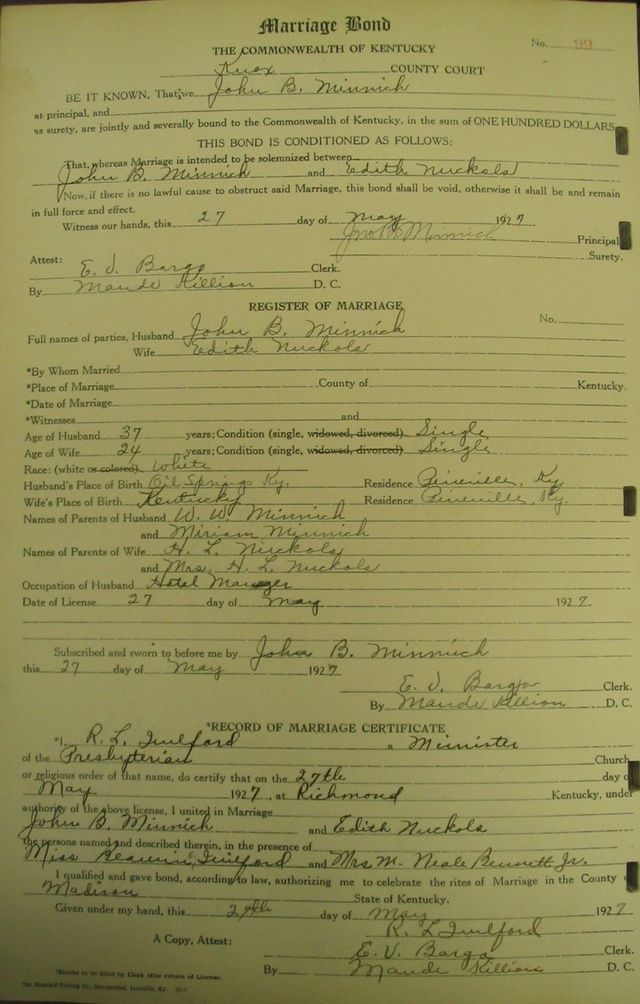 Marriage Bond
No. 99
THE COMMONWEALTH OF KENTUCKY
Knox COUNTY COURT
BE IT KNOWN, That we John B. Minnich
as principal, and
as surety, are jointly and severally bound to the Commonwealth of Kentucky, in the sum of ONE HUNDRED DOLLARS
THIS BOND IS CONDITIONED AS FOLLOWS:
That, whereas Marriage is intended to be solemnized between
John B. Minnich and Edith Nuckols
Now, if there is no lawful cause to obstruct said Marriage, this bond shall be void, otherwise it shall be and remain
in full force and effect.
Witness our hands, this 27 day of May 1927
Jno B Minnich Principal
Surety.
Attest:
E. V. Bargo Clerk.
By Maude Killion D. C.
REGISTER OF MARRIAGE
No.
Full names of parties, Husband John B. Minnich
Wife Edith Nuckols
*By Whom Married
*Place of Marriage County of Kentucky.
*Date of Marriage
*Witnesses and
Age of Husband 37 years; Condition (single, widowed, divorced) Single
Age of Wife 24 years; Condition (single, widowed, divorced) Single
Race: (white or colored) White
Husband's Place of Birth Oil Springs Ky. Residence Pineville, Ky
Wife's Place of Birth Kentucky Residence Pineville Ky.
Names of Parents of Husband W. W. Minnich
and Miriam Minnich
Names of Parents of Wife H. L. Nuckols
and Mrs. H. L. Nuckols
Occupation of Husband Hotel Manager
Date of License 27 day of May 1927.
Subscribed and sworn to before me by John B. Minnich
this 27 day of May 1927
E. V. Bargo Clerk.
By Maude Killion D. C.
*RECORD OF MARRIAGE CERTIFICATE
*I, R. L. Guilford a Minister
of the Presbyterian Church
or religious order of that name, do certify that on the 27th day o
May 1927, at Richmond Kentucky, under
authority of the above license, I united in Marriage
John B. Minnich and Edith Nuckols
the persons named and described therein, in the presence of
Miss Guilford and Mrs M. Neale Bennett Jr.
I qualified and gave bond, according to law, authorizing me to celebrate the rites of Marriage in the County
Madison State of Kentucky.
Given under my hand, this 27th day of May 1927
R. L. Guilford
A Copy, Attest: E. V. Bargo Clerk.
By Maude Killion D. C.
*Blanks to be filled by Clerk after return of License.
The Standard Printing Co., Incorporated, Louisville, Ky.